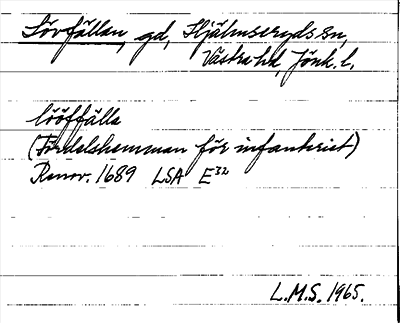 Lövfällan, gd, Hjälmseryds sn,
Västra hd, Jönk. l.
lööffälla
(Fördelshemman för infanterist)
Renov. 1689 LSA E³²
L.M.S. 1965.